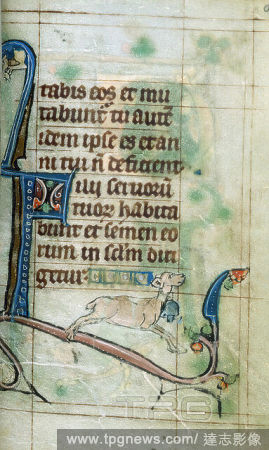 tabis eos et mu
tabunt᷑ tu autē
idem ipse es et an
ni tui n̄ deficient
Filij seruorū
tuorꝝ habita
bunt et semen eo
rum in sc̄lm diri
getur
TPG
www.tpgnews.com/ 達志影像